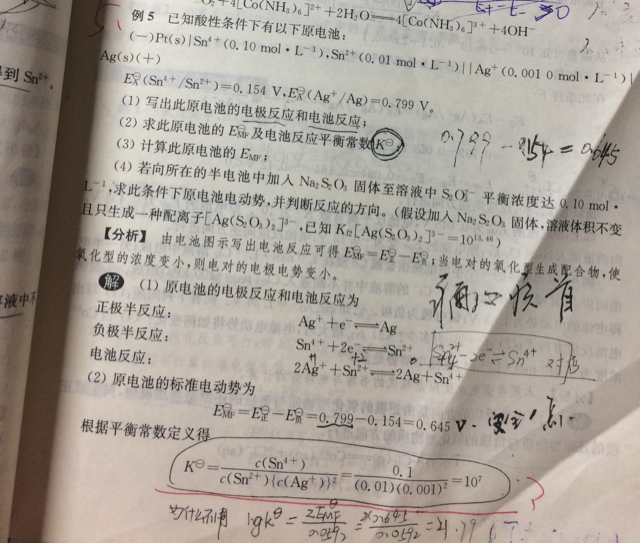 O₂+4[Co(NH₃)₆]²⁺+2H₂O══4[Co(NH₃)₆]³⁺+4OH⁻
例5 已知酸性条件下有以下原电池:
(一)Pt(s)|Sn⁴⁺(0.10 mol·L⁻¹),Sn²⁺(0.01 mol·L⁻¹)||Ag⁺(0.001 0 mol·L⁻¹)|
Ag(s)(+)
得到 Sn²⁺.
E(Sn⁴⁺/Sn²⁺)=0.154 V,E(Ag⁺/Ag)=0.799 V。
(1) 写出此原电池的电极反应和电池反应;
(2) 求此原电池的 E^⊖_MF 及电池反应平衡常数 K^⊖;
0.799 - 0.154 = 0.645
(3) 计算此原电池的 E_MF;
(4) 若向所在的半电池中加入 Na₂S₂O₃ 固体至溶液中 S₂O₃²⁻ 平衡浓度达 0.10 mol·
L⁻¹,求此条件下原电池电动势,并判断反应的方向。(假设加入 Na₂S₂O₃ 固体,溶液体积不变
且只生成一种配离子[Ag(S₂O₃)₂]³⁻,已知 K[Ag(S₂O₃)₂]³⁻=10¹³·⁴⁶)
【分析】 由电池图示写出电池反应可得 E^⊖_MF=E^⊖-E^⊖;当电对的氧化型生成配合物,使
氧化型的浓度变小,则电对的电极电势变小。
溶液中不
解 (1) 原电池的电极反应和电池反应为
正极半反应: Ag⁺+e⁻⇌Ag
负极半反应: Sn⁴⁺+2e⁻⇌Sn²⁺
-2e⁻⇌Sn⁴⁺
电池反应: 2Ag⁺+Sn²⁺⇌2Ag+Sn⁴⁺
(2) 原电池的标准电动势为
E^⊖_MF=E^⊖_正-E^⊖_负=0.799-0.154=0.645 V.
根据平衡常数定义得
K^⊖=c(Sn⁴⁺)/c(Sn²⁺){c(Ag⁺)}²=0.1/(0.01)(0.001)²=10⁷
?
为什么不用 lgK^θ = 2E^θ_MF/0.0592 = 2×0.645/0.0592 = 21.79